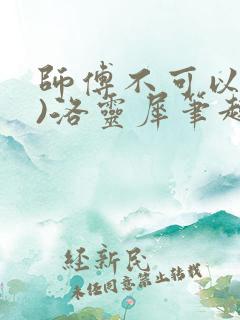 師傅不可以
)洛靈犀筆趣
經新民
未经同意禁止转载